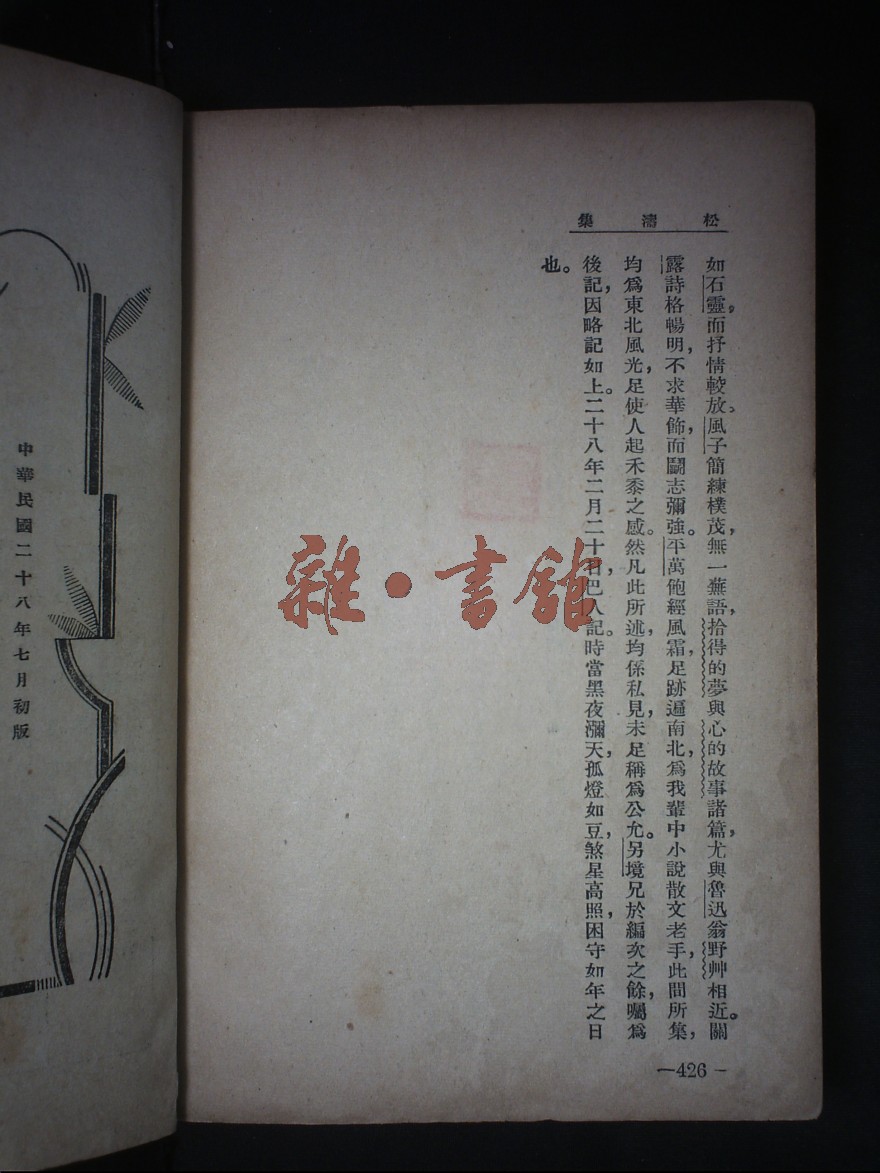 松濤集
如石靈，而抒情較放。風子簡練樸茂，無一蕪語，拾得的夢與心的故事諸篇，尤與魯迅翁野艸相近。關
露詩格暢明，不求華飾，而鬪志彌強。平萬飽經風霜，足跡遍南北，爲我輩中小說散文老手，此間所集，
均爲東北風光，足使人起禾黍之感。然凡此所述，均係私見，未足稱爲公允。另境兄於編次之餘，囑爲
後記，因略記如上。二十八年二月二十日，巴人記。時當黑夜瀰天，孤燈如豆，煞星高照，困守如年之日
也。
—426—
中華民國二十八年七月初版
雜·書館